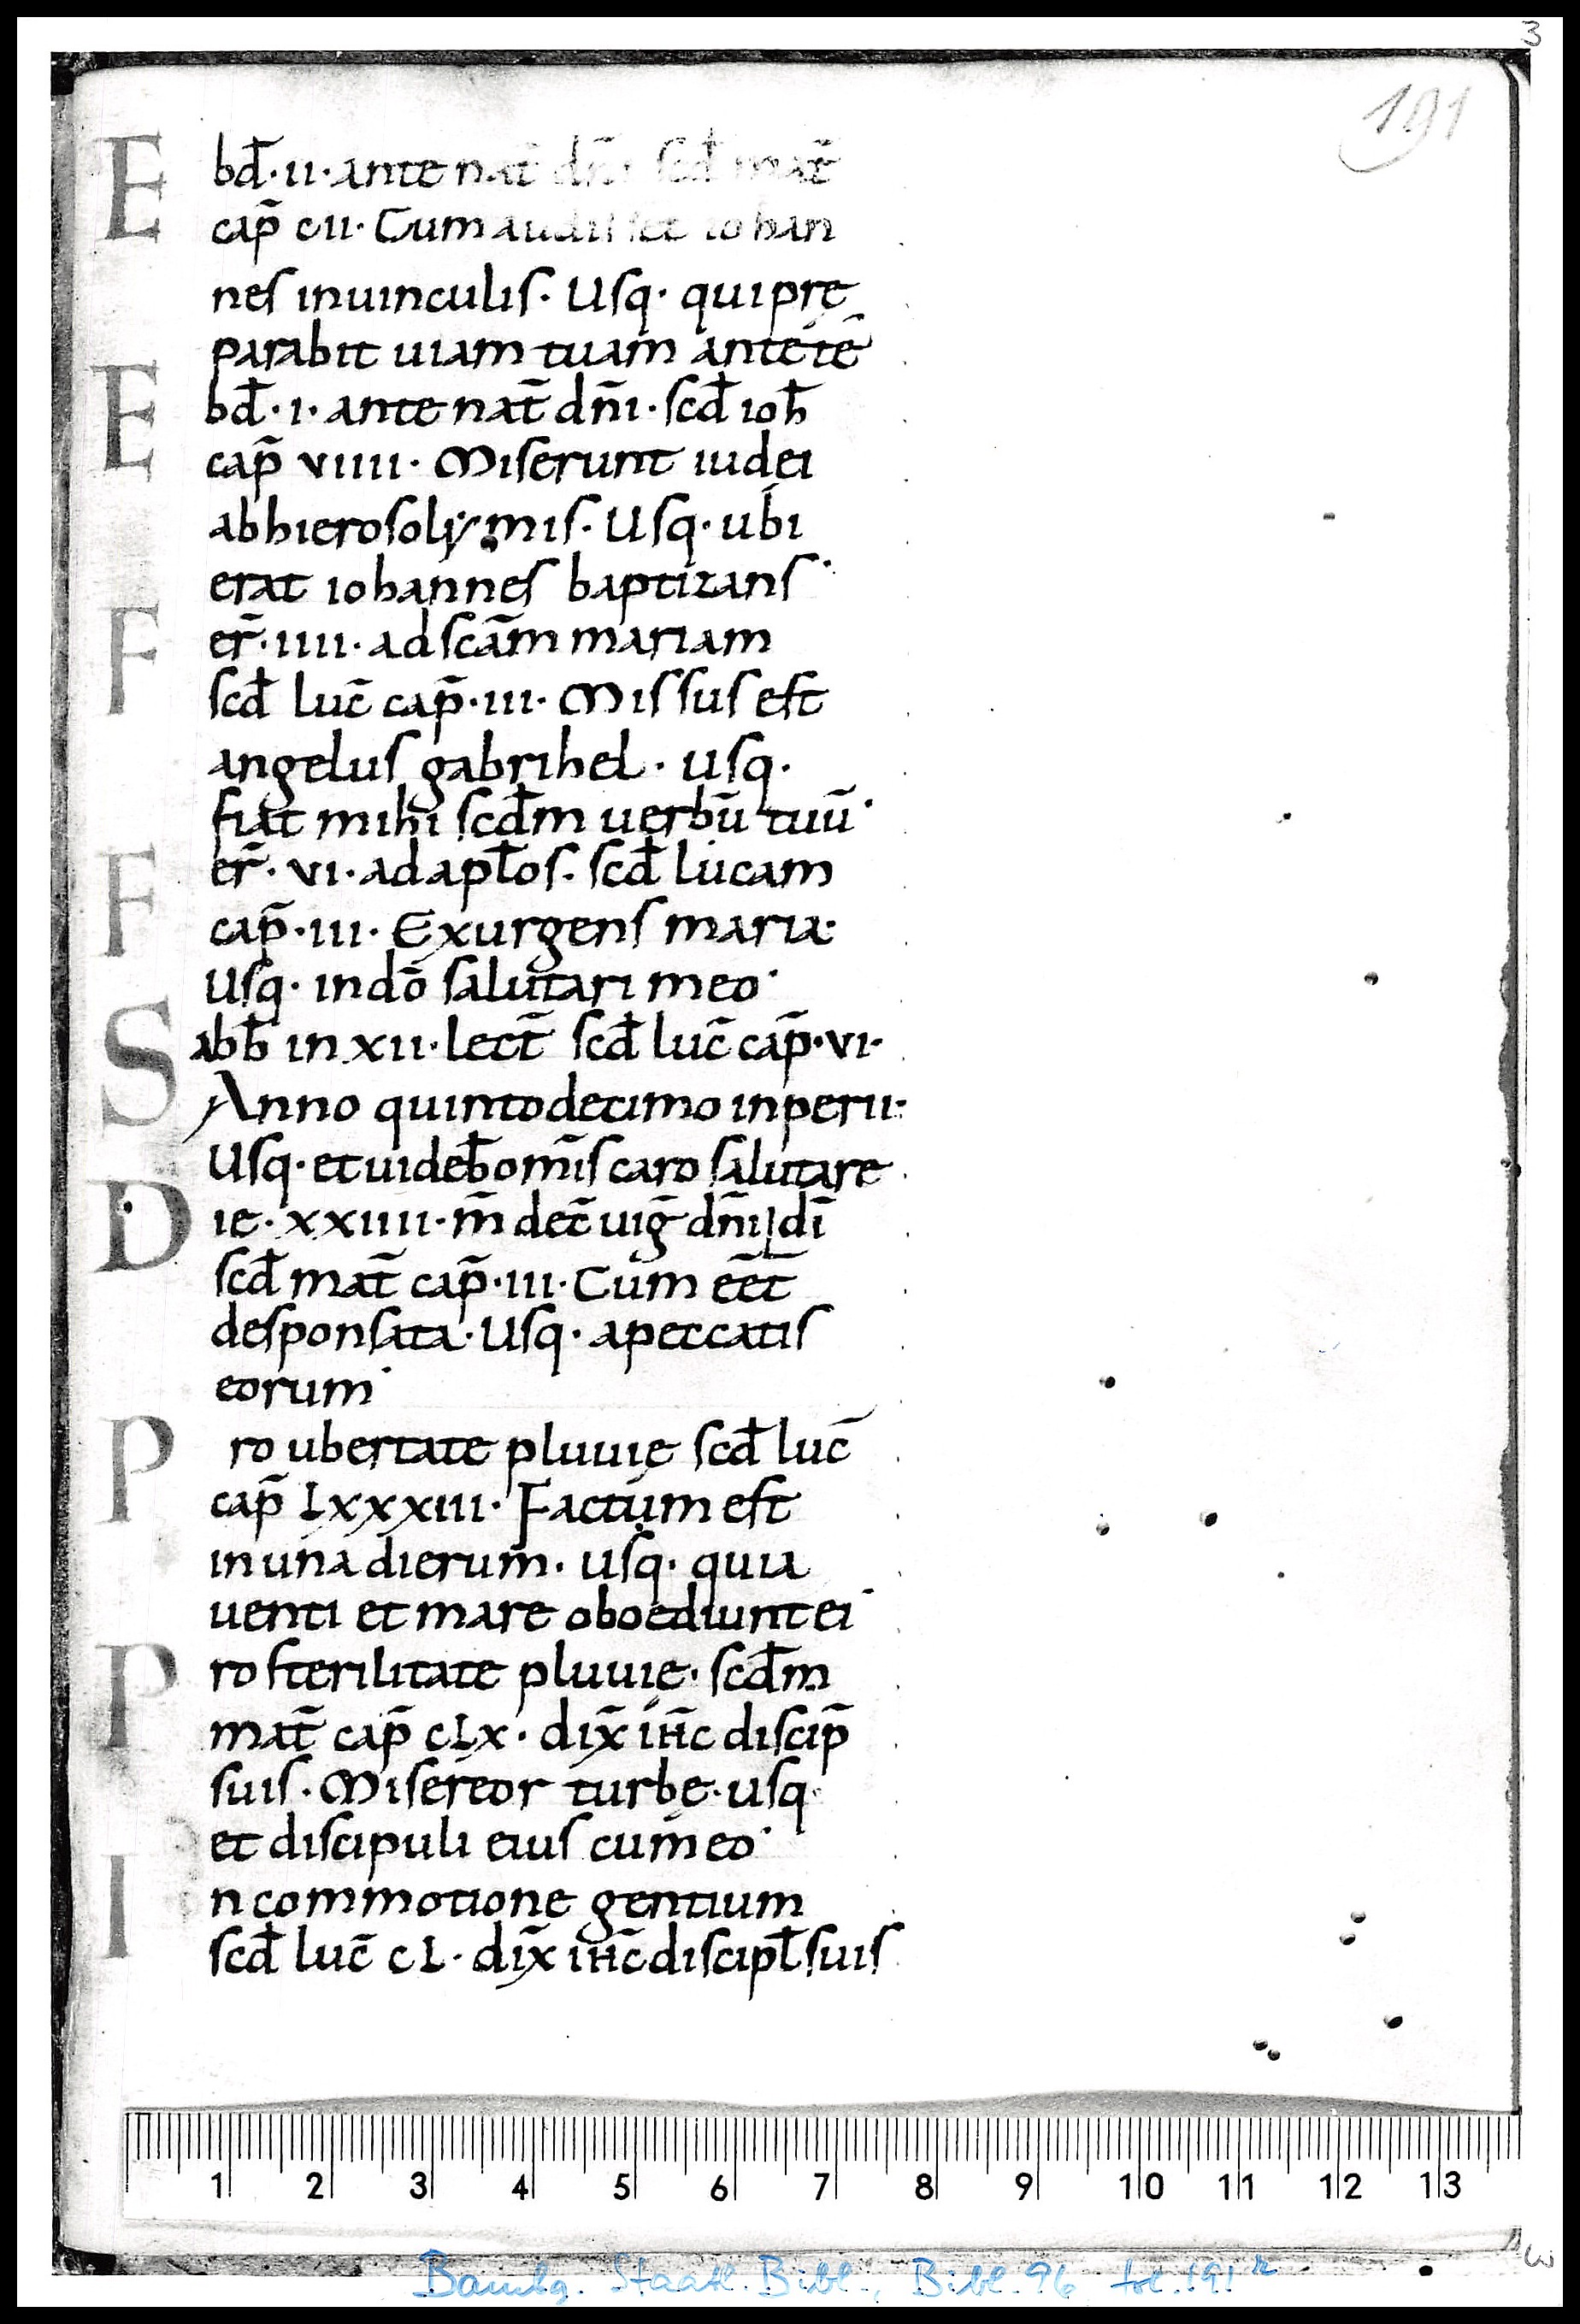 3
191
Ebd̄·ii·ante nat̄ dn̄i scd̄ mat̄
cap̄ cii· Cum audisset iohan
nes inuinculis· Usq· quipre̜
parabit uiam tuam ante te
Ebd̄·i·ante nat̄ dn̄i·scd̄ ioh̄
cap̄ viiii· Miserunt iudei
abhierosolymis· Usq· ubi
erat iohannes baptizans·
Fer̄·iiii·ad scām mariam
scd̄ luc̄ cap̄·iii· Missus est
angelus gabrihel· usq·
fiat mihi scd̄m uerbū tuū·
Fer̄·vi·ad apl̄os· scd̄ lucam
cap̄·iii· Exurgens maria·
Usq· indō salutari meo·
Sabb̄ in xii·lect̄ scd̄ luc̄ cap̄·vi·
Anno quintodecimo inperii·
Usq·et uideb̄ om̄is caro salutare
Die·xxiiii·m̄ dec̄ uiḡ dn̄i dī
scd̄ mat̄ cap̄·iii· Cum ēēt̄
desponsata·Usq· apeccatis
eorum·
Pro ubertate pluuie̜ scd̄ luc̄
cap̄ Lxxxiii· Factum est
in una dierum· usq· quia
uenti et mare oboediunt ei·
Pro sterilitate pluuie̜· scd̄m
mat̄ cap̄ cLx· dix̄ ih̄c discip̄
suis· Misereor turbe̜·usq·
et discipuli eius cum eo·
In commotione gentium
scd̄ luc̄ cL· dix̄ ih̄c discipl̄ suis
1 2 3 4 5 6 7 8 9 10 11 12 13
Bambg. Staatl. Bibl., Bibl. 96 fol. 191r